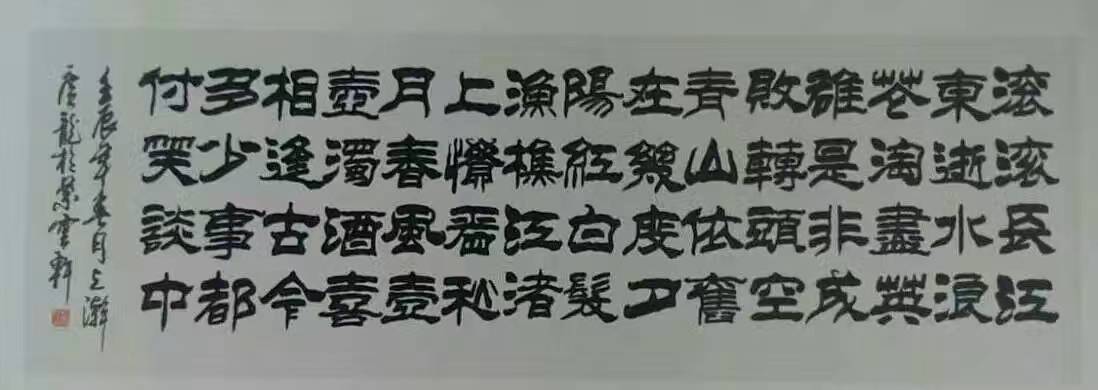 滚滚長江
東逝水浪
花淘盡英
雄是非成
敗轉頭空
青山依舊
在幾度夕
陽紅白髮
漁樵江渚
上慣看秋
月春風壹
壺濁酒喜
相逢古今
多少事都
付笑談中
壬辰年春月之澣
龍於紫雲軒